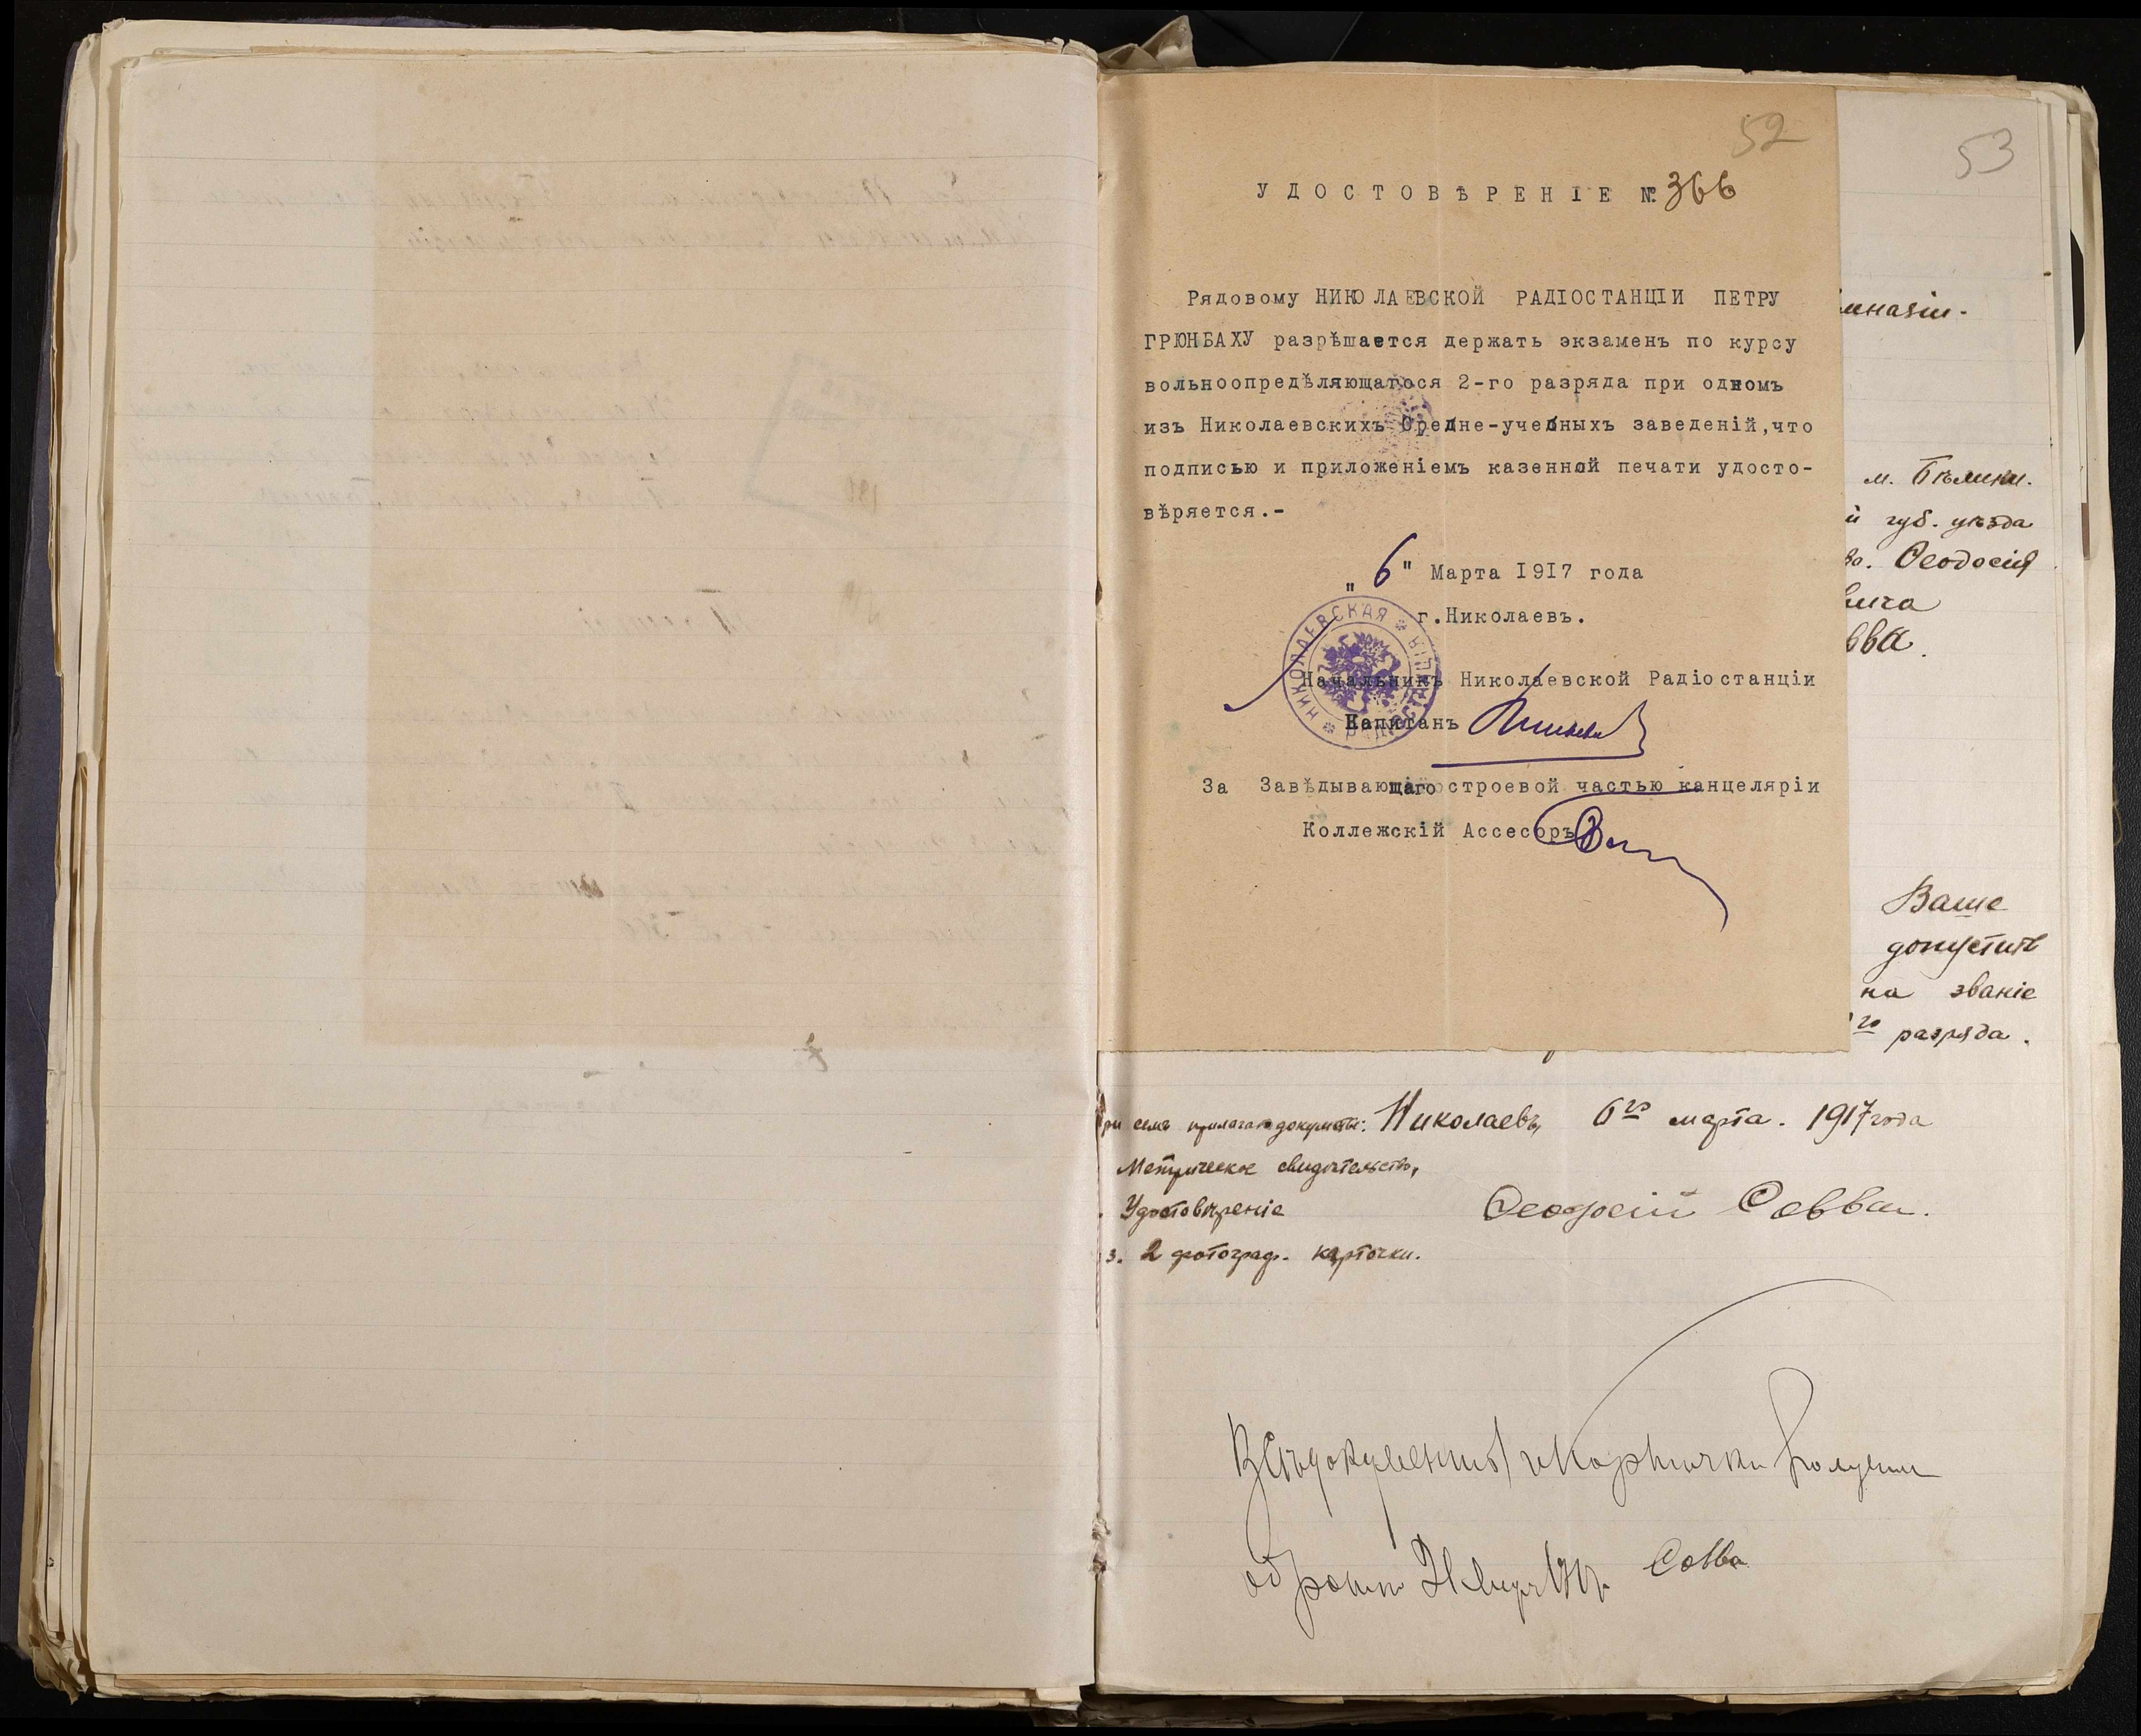 52
УДОСТОВѢРЕНІЕ №366
Рядовому НИКОЛАЕВСКОЙ РАДІОСТАНЦІИ ПЕТРУ
ГРЮНБАХУ разрѣшается держать экзаменъ по курсу
вольноопредѣляющагося 2-го разряда при одномъ
изъ Николаевскихъ Средне-учебныхъ заведеній,что
подписью и приложеніемъ казенной печати удосто-
вѣряется.-
"6" Марта 1917 года
г.Николаевъ.
НИКОЛАЕВСКАЯ РАДІОСТАНЦІЯ
Начальникъ Николаевской Радіостанціи
Капитанъ
За Завѣдывающаго строевой частью канцеляріи
Коллежскій Ассесоръ
53
мназіи.
м. Бѣлики.
й губ. уѣзда
ва. Ѳеодосія
вича
вва.
Ваше
допустить
на званіе
го разряда.
При семъ прилагаю документы: Николаевъ, 6го марта. 1917 года
Метрическое свидѣтельство,
Удостовѣреніе
Ѳеодосій Савва.
3. 2 фотограф. карточки.
Всѣ документы и карточки получилъ
обратно 21 1917г. Савва